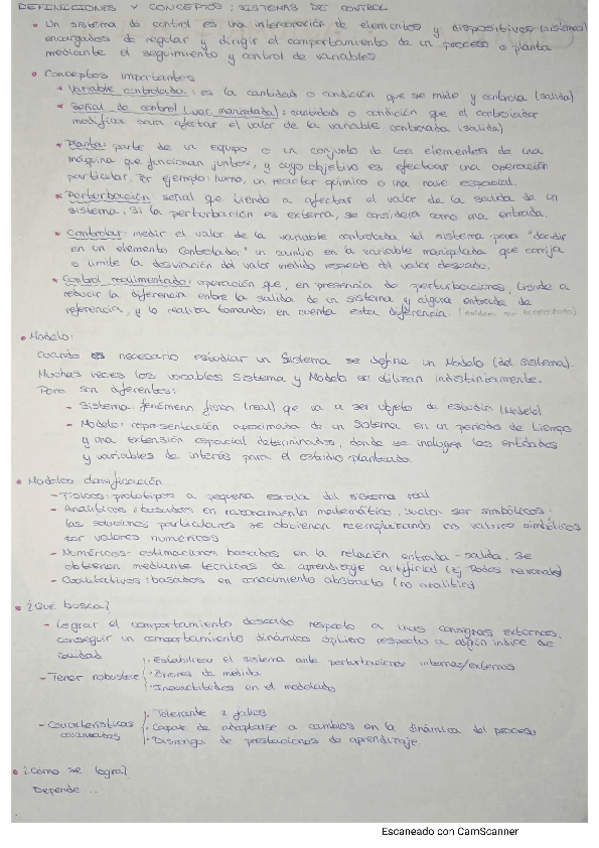 DEFINICIONES Y CONCEPTOS: SISTEMAS DE CONTROL
• Un sistema de control es una interconexión de elementos y dispositivos (sistemas)
encargados de regular y dirigir el comportamiento de un proceso o planta
mediante el seguimiento y control de variables
• Conceptos importantes
* Variable controlada: es la cantidad o condición que se mide y controla (salida)
* Señal de control (var. manipulada): cantidad o condición que el controlador
modifica para afectar el valor de la variable controlada (salida)
* Planta: parte de un equipo o un conjunto de los elementos de una
máquina que funcionan juntos, y cuyo objetivo es efectuar una operación
particular. Por ejemplo: horno, un reactor químico o una nave espacial.
* Perturbación: señal que tiende a afectar el valor de la salida de un
sistema. Si la perturbación es externa, se considera como una entrada.
* Controlar: medir el valor de la variable controlada del sistema para "decidir
en un elemento Controlador" un cambio en la variable manipulada que corrija
o limite la desviación del valor medido respecto del valor deseado.
* Control realimentado: operación que, en presencia de perturbaciones, tiende a
reducir la diferencia entre la salida de un sistema y alguna entrada de
referencia, y lo realiza tomando en cuenta esta diferencia.
• Modelo:
Cuando es necesario estudiar un Sistema se define un Modelo (del sistema).
Muchas veces los vocablos Sistema y Modelo se utilizan indistintamente.
Pero son diferentes:
- Sistema: fenómeno físico (real) que va a ser objeto de estudio (Modelo)
- Modelo: representación aproximada de un Sistema en un periodo de tiempo
y una extensión espacial determinados, donde se incluyen las entidades
y variables de interés para el estudio planteado
• Modelos clasificación
- Físicos: prototipos a pequeña escala del sistema real
- Analíticos: basados en razonamiento matemático, suelen ser simbólicos:
las soluciones particulares se obtienen reemplazando los valores simbólicos
por valores numéricos
- Numéricos: estimaciones basadas en la relación entrada-salida. Se
obtienen mediante técnicas de aprendizaje artificial (Ej Redes neuronales)
- Cualitativos: basados en conocimiento abstracto (no analítico)
• ¿Qué busca?
- Lograr el comportamiento deseado respecto a unas consignas externas.
conseguir un comportamiento dinámico óptimo respecto a algún índice de
calidad
- Tener robustez
· Estabilizar el sistema ante perturbaciones internas/externas
· Errores de medida
· Inexactitudes en el modelado
- Características avanzadas
· Tolerante a fallos
· Capaz de adaptarse a cambios en la dinámica del proceso
· Disponga de prestaciones de aprendizaje
• ¿Cómo se logra?
Depende ..
Escaneado con CamScanner